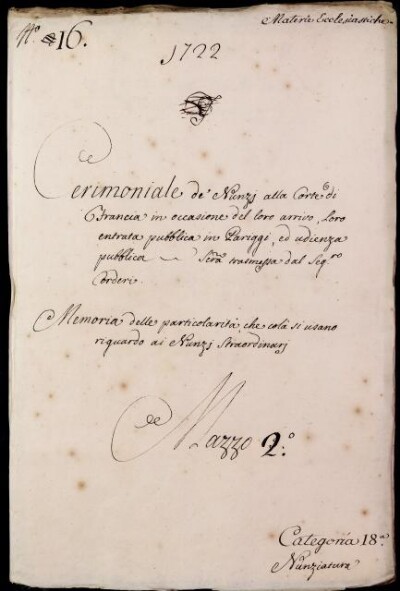 Materie Ecclesiastiche
N.º 16.
1722
Cerimoniale de' Nunzj alla Corte di
Francia in occasione del loro arrivo, loro
entrata pubblica in Pariggi, ed udienza
pubblica trasmessa dal Seg.ro
Corderi.
Memoria delle particolarità, che colà si usano
riguardo ai Nunzj Straordinarj
Mazzo 2.º
Categoria 18.a
Nunziatura